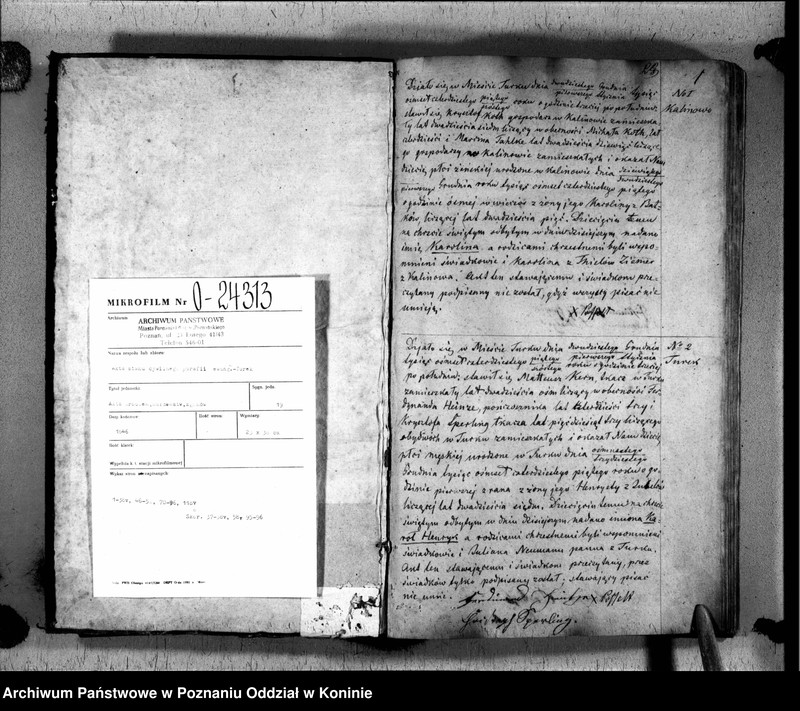 MIKROFILM Nr 0-24313
Archiwum
ARCHIWUM PAŃSTWOWE
Poznań, ul. 23 Lutego 41/43
Telefon 546-01
Nazwa zespołu lub zbioru
Tytuł jednostki
Sygn. jedn.
13
Daty końcowe
Ilość stron
Wymiary
1846
Ilość klatek
Wypełnia k-t stacji mikrofilmowej
Wykaz stron
1
No 1
Kalinowo
Działo się w Mieście Turku dnia dwudziestego Grudnia / pierwszego Stycznia tysiąc
ośmset czterdziestego piątego / szóstego roku o godzinie trzeciej po południu,
stawił się Krzysztof Kotk gospodarz w Kalinowie zamieszka-
ły lat dwadzieścia siedm liczący w obecności Michała Kotk, lat
czterdzieści i Marcina lat dwadzieścia dziewięć liczące-
go gospodarzy w Kalinowie zamieszkałych i okazał Nam
dziecię płci żeńskiej urodzone w Kalinowie dnia dziewiątego / dwudziestego
pierwszego Grudnia roku tysiąc ośmset czterdziestego piątego
o godzinie ósmej w wieczór z żony jego Karoliny z
liczącej lat dwadzieścia pięć. Dziecięciu temu
na chrzcie świętym odbytym w dniu dzisiejszym nadano
imię Karolina a rodzicami chrzestnemi byli wspo-
mnieni świadkowie i Karolina z
z Kalinowa. Akt ten stawającemu i świadkom prze-
czytany podpisanny nie został, gdyż wszyscy pisać nie
umieją.
No 2
Turek
Działo się, w Mieście Turku dnia dwudziestego Grudnia / pierwszego Stycznia
tysiąc ośmset czterdziestego piątego / szóstego roku o godzinie trzeciej
po południu, stawił się Mateusz Kern, tkacz w Turku
zamieszkały, lat dwadzieścia ośm liczący w obecności Fer-
dynanda Heinze, pończosznika lat czterdzieści trzy i
Krzysztofa Sperling tkacza lat pięćdziesiąt trzy liczącego
obydwóch w Turku zamieszkałych i okazał Nam dziecię
płci męzkiej urodzone w Turku dnia ośmnastego / trzydziestego
Grudnia tysiąc ośmset czterdziestego piątego roku o go-
dzinie pierwszej z rana z żony jego Henryety z
liczącej lat dwadzieścia siedm. Dziecięciu temu na chrzcie
świętym odbytym w dniu dzisiejszym, nadano imiona Ka-
rol Henryk a rodzicami chrzestnemi byli wspomnieni
świadkowie i Julianna Neumann panna z Turku.
Akt ten stawającemu i świadkom przeczytany, przez
świadków tylko podpisany został, stawający pisać
nie umie.
Christoph Sperling.
Archiwum Państwowe w Poznaniu Oddział w Koninie